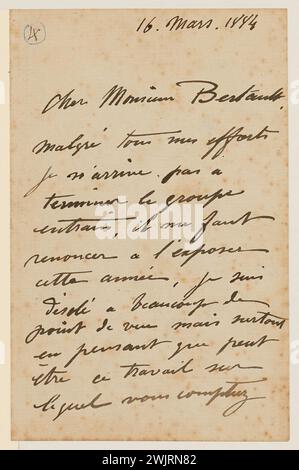 18
16. Mars. 1884
Cher Monsieur Bertault,
malgré tous mes efforts
je n'arrive pas a
terminer le groupe
entrain, il me faut
renoncer a l'exposer
cette année, je suis
désolé a beaucoup de
point de vue mais surtout
en pensant que peut
être ce travail sur
lequel vous comptiez
alamy
Image ID: 2WJRN82
www.alamy.com